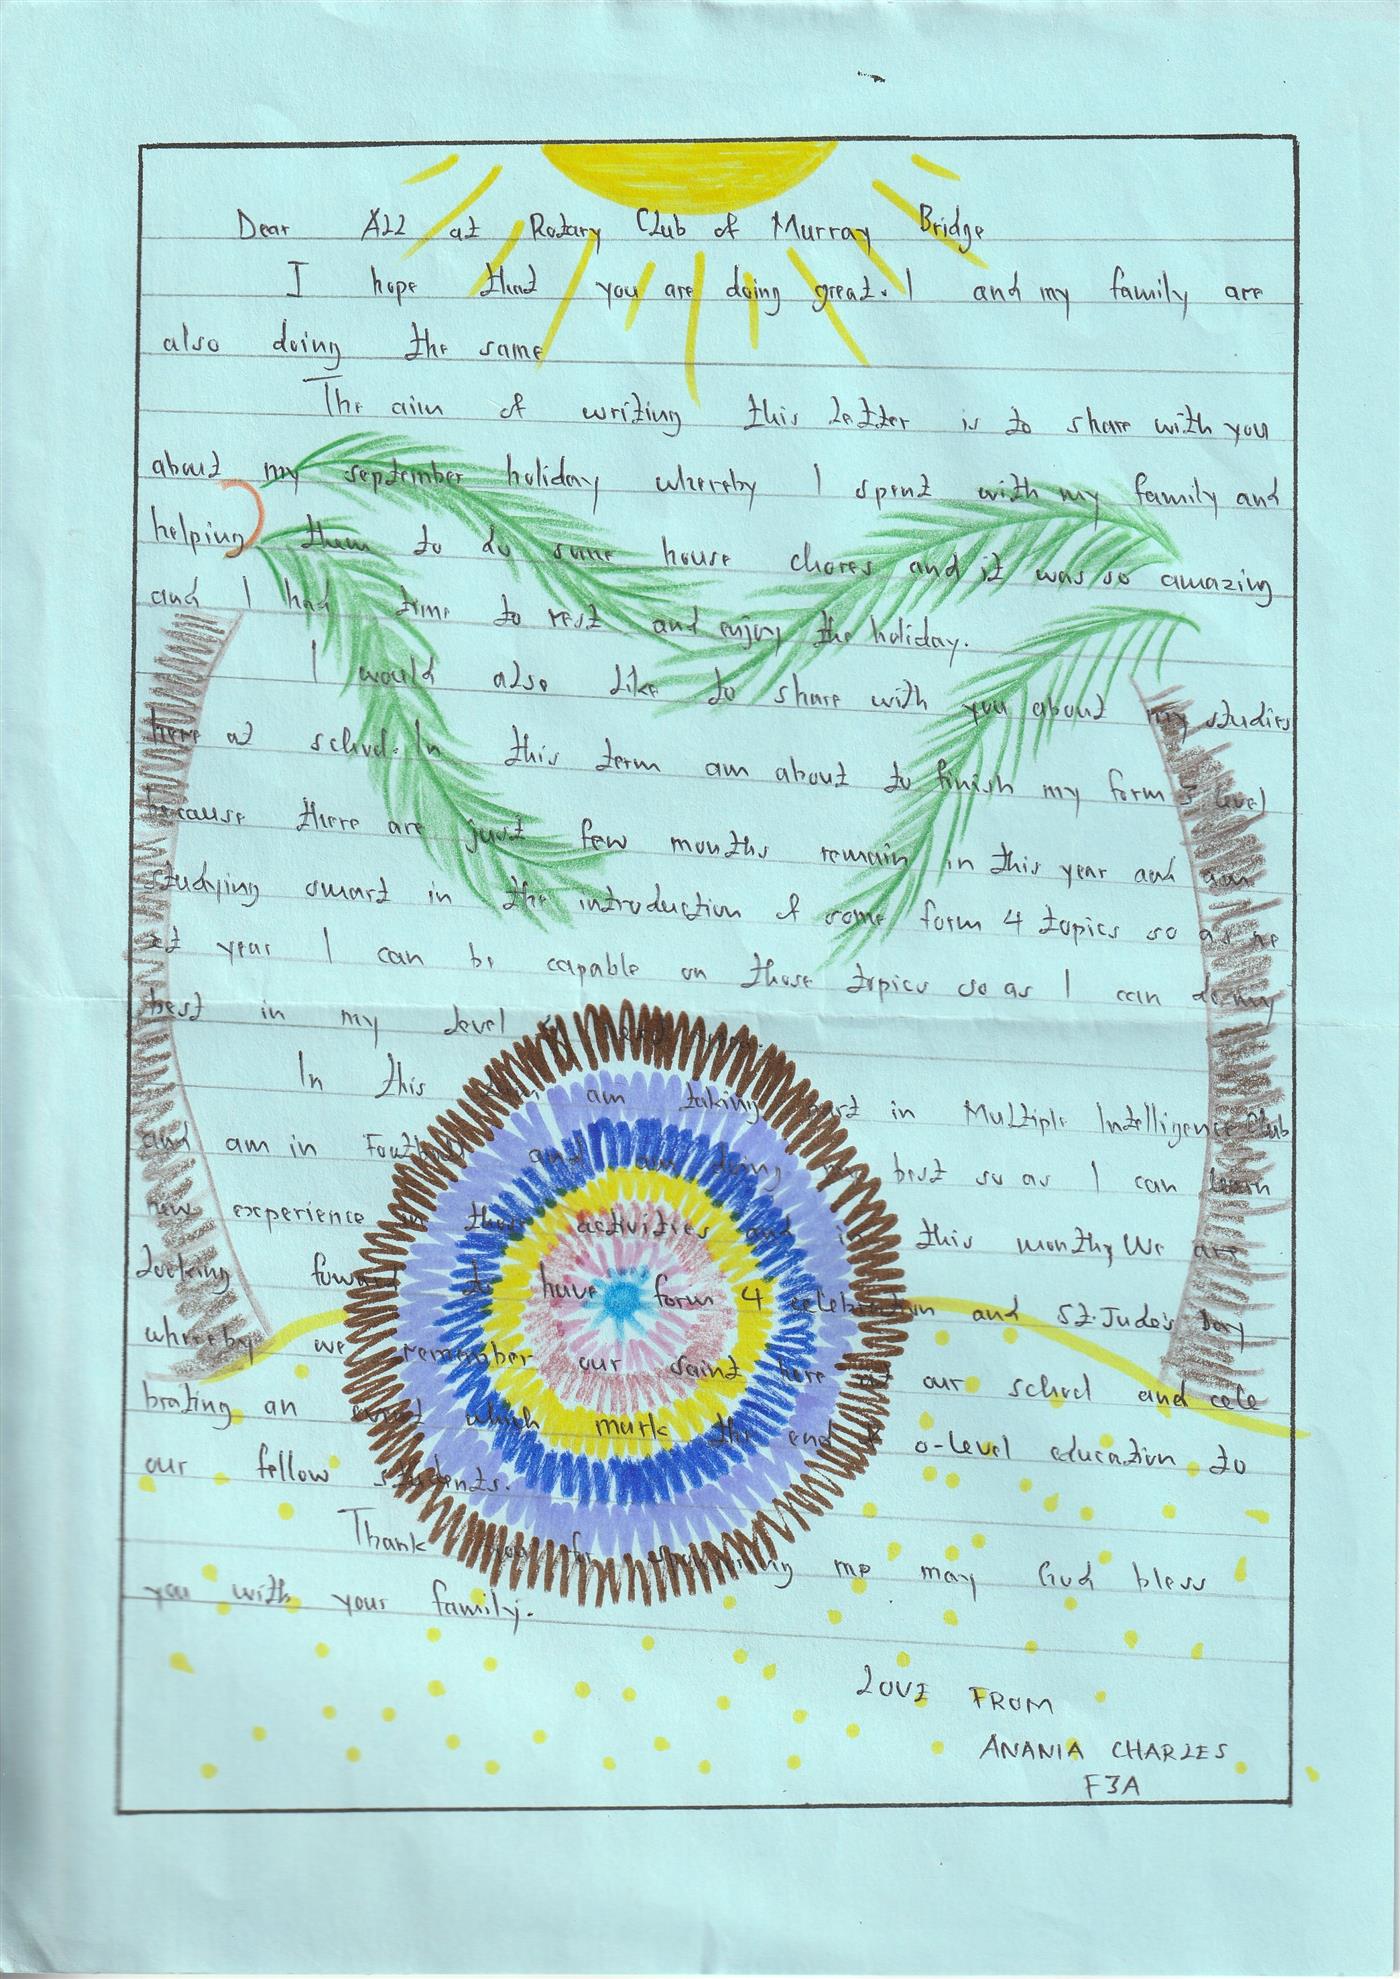 Dear All at Rotary Club of Murray Bridge
I hope that you are doing great. I and my family are
also doing the same
The aim of writing this letter is to share with you
about my september holiday whereby I spent with my family and
helping them to do some house chores and it was so amazing
and I had time to rest and enjoy the holiday.
I would also like to share with you about my studies
here at school. In this term am about to finish my form 3 level
because there are just few months remain in this year and am
studying smart in the introduction of some form 4 topics so as ne
xt year I can be capable on those topics so as I can do my
best in my level
In this am taking part in Multiple Intelligence Club
and am in and am doing my best so as I can learn
new experience in those activities and in this month, We are
looking foward to have form 4 celebration and St. Jude's Day
whereby we remember our saint here at our school and cele
brating an event which mark the end of o-level education to
our fellow students.
Thank you for sponsoring me may God bless
you with your family.
LOVE FROM
ANANIA CHARLES
F3A